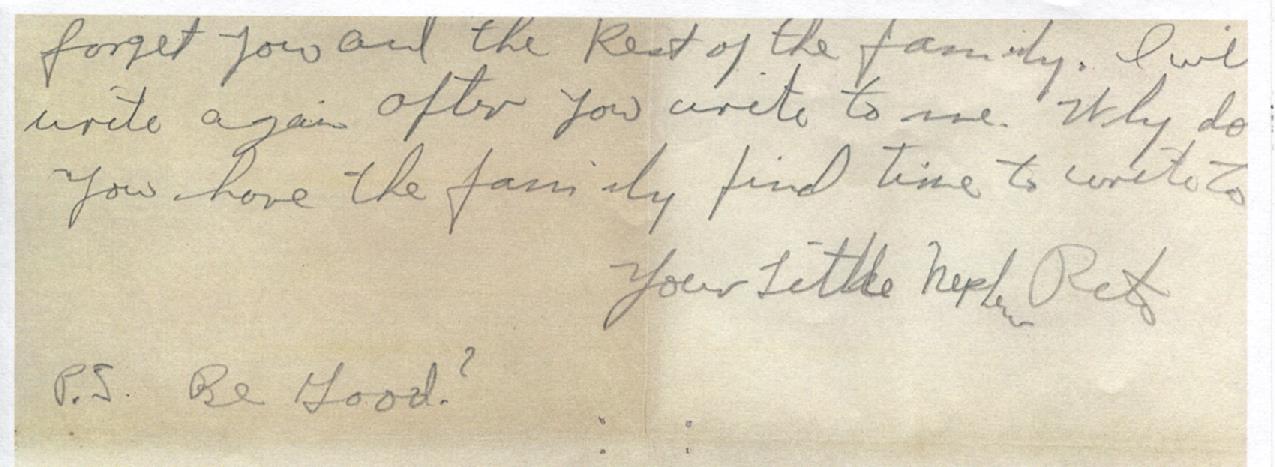 forget you and the Rest of the family. I wil
write again after you write to me. Why do
you have the family find time to write to
Your Little Nephew
P.S. Be Good.?